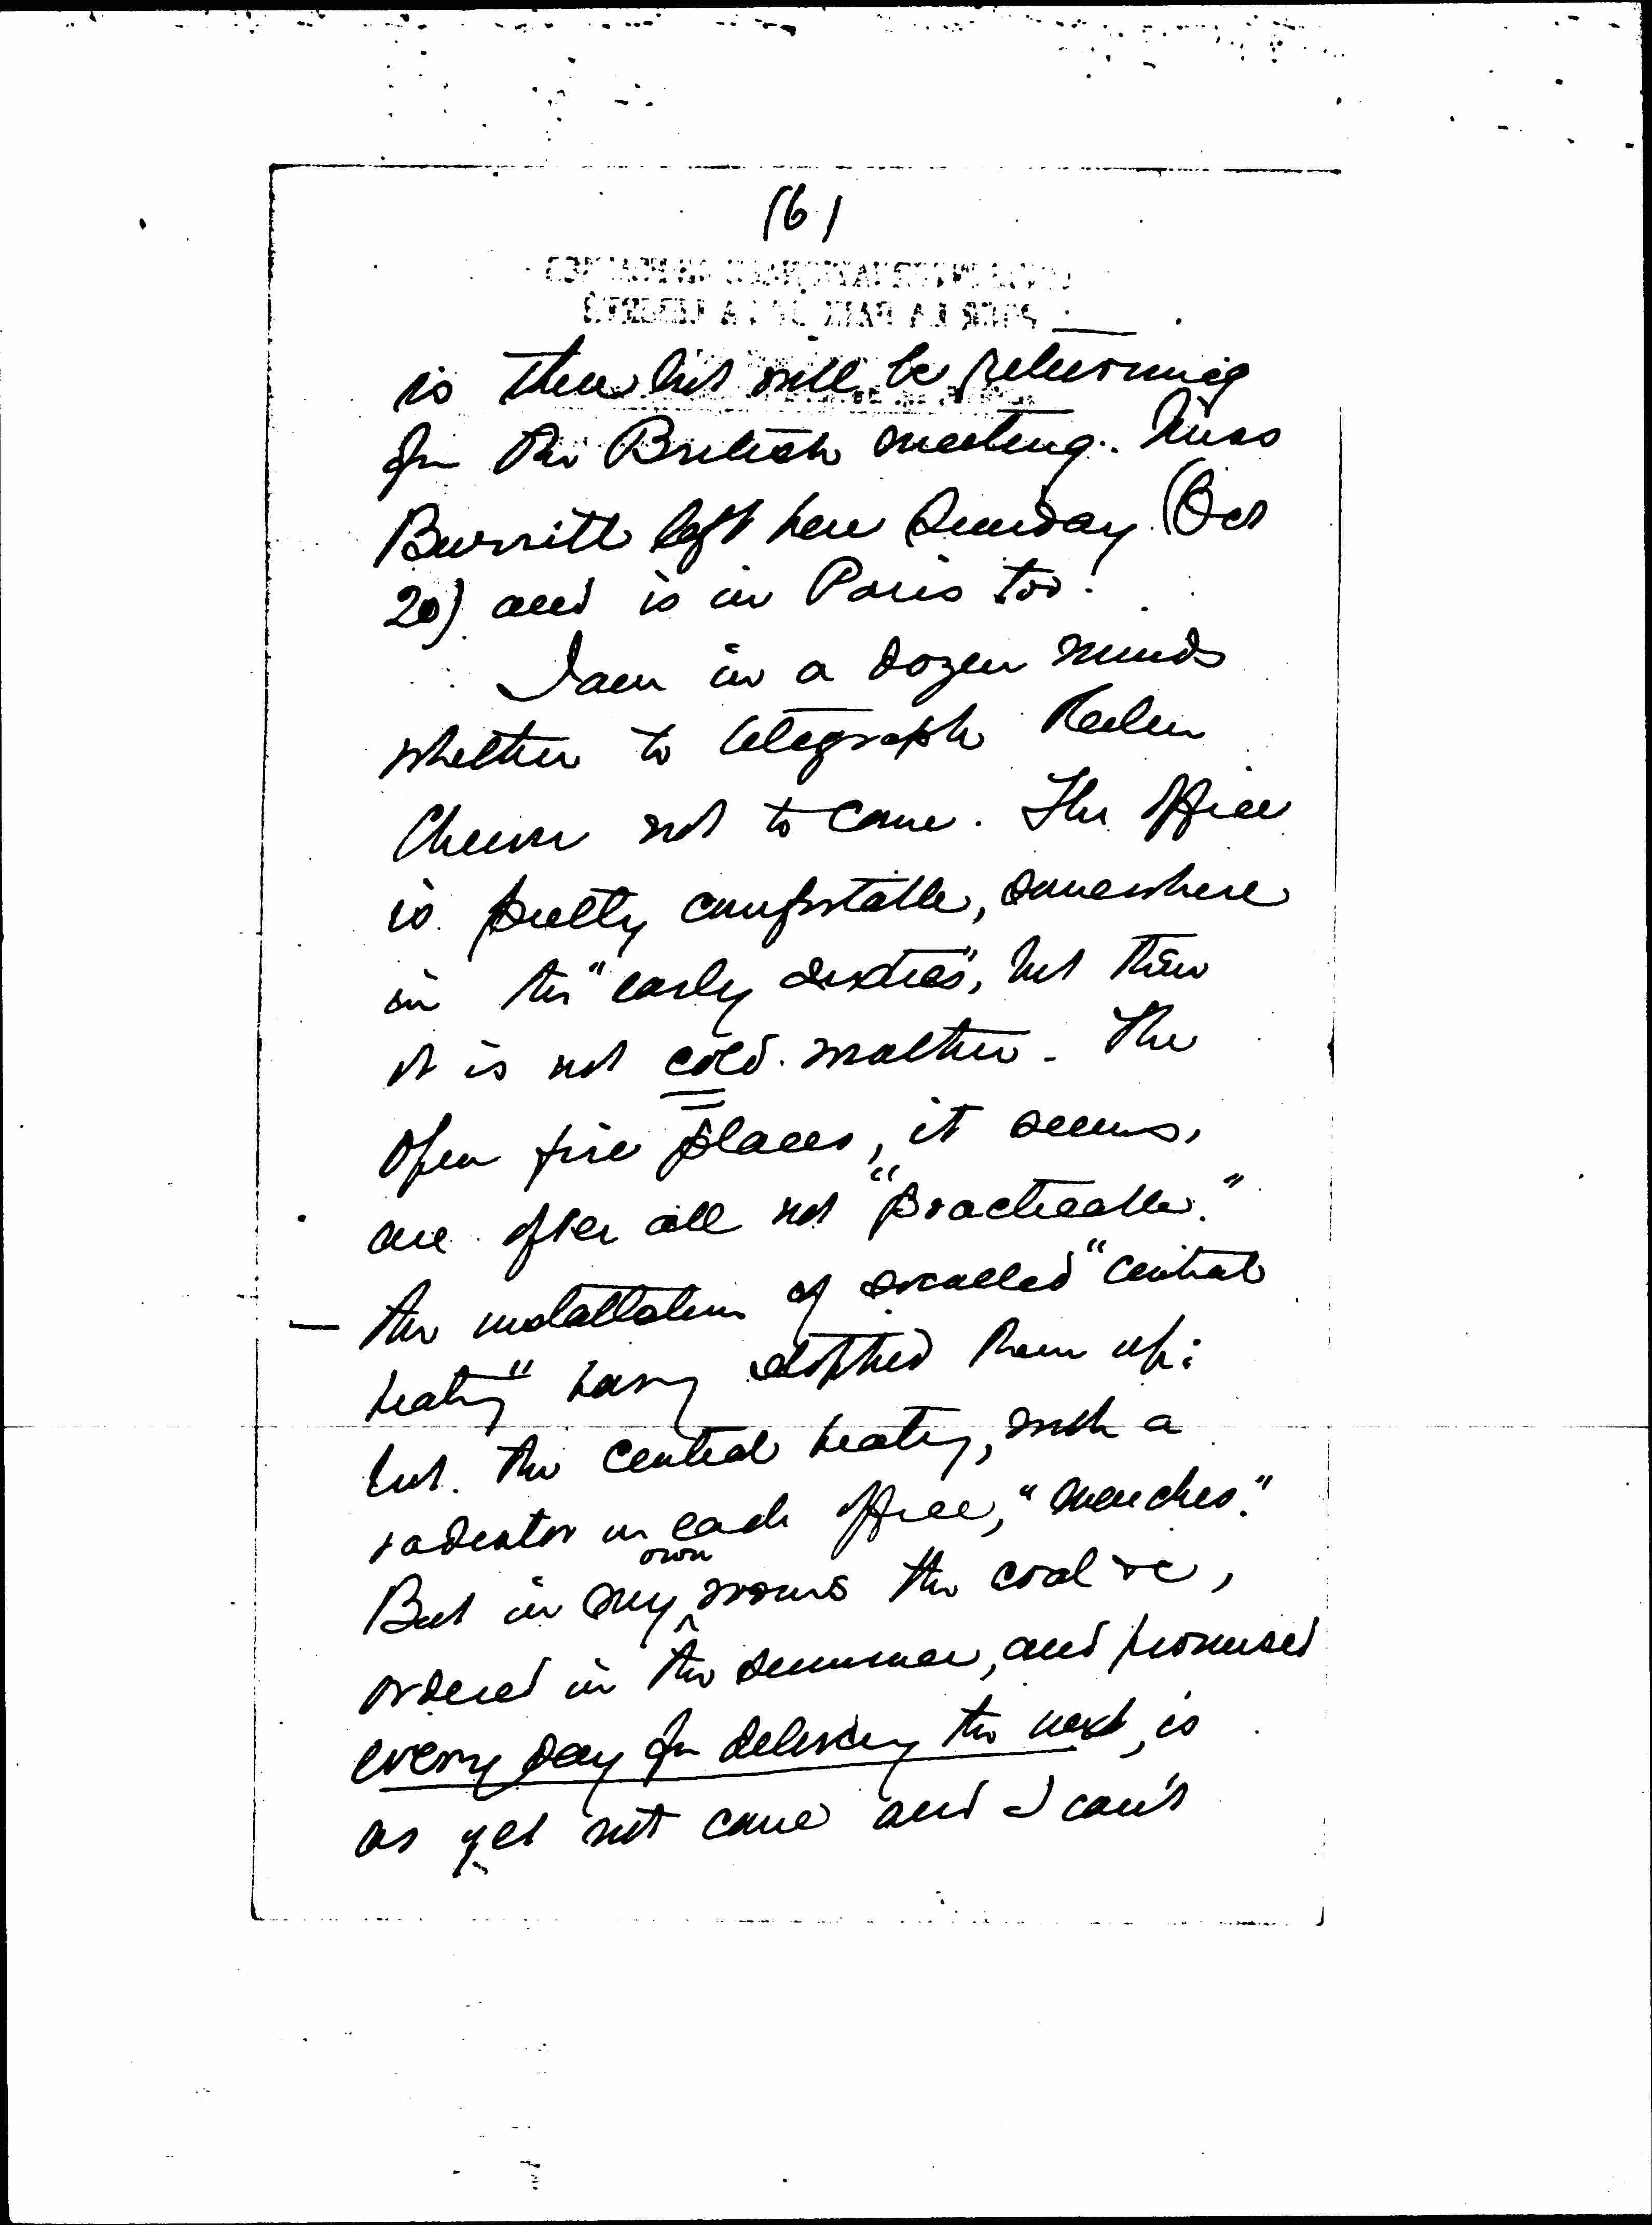 (6)
is there but will be returning
for the British meeting. Miss
Burritt left here Sunday (Oct
20) and is in Paris too.
I am in a dozen minds
whether to telegraph Helen
Cheever not to come. The office
is pretty comfortable, somewhere
in the "early sixties", but then
it is not cold weather. The
open fire places, it seems,
are after all not "practicable."
— the installation of so called "central
heating" having stopped them up;
but the central heating, with a
radiator in each office, "marches."
But in my own rooms the coal &c,
ordered in the summer, and promised
every day for delivery the next, is
as yet not come and I can't